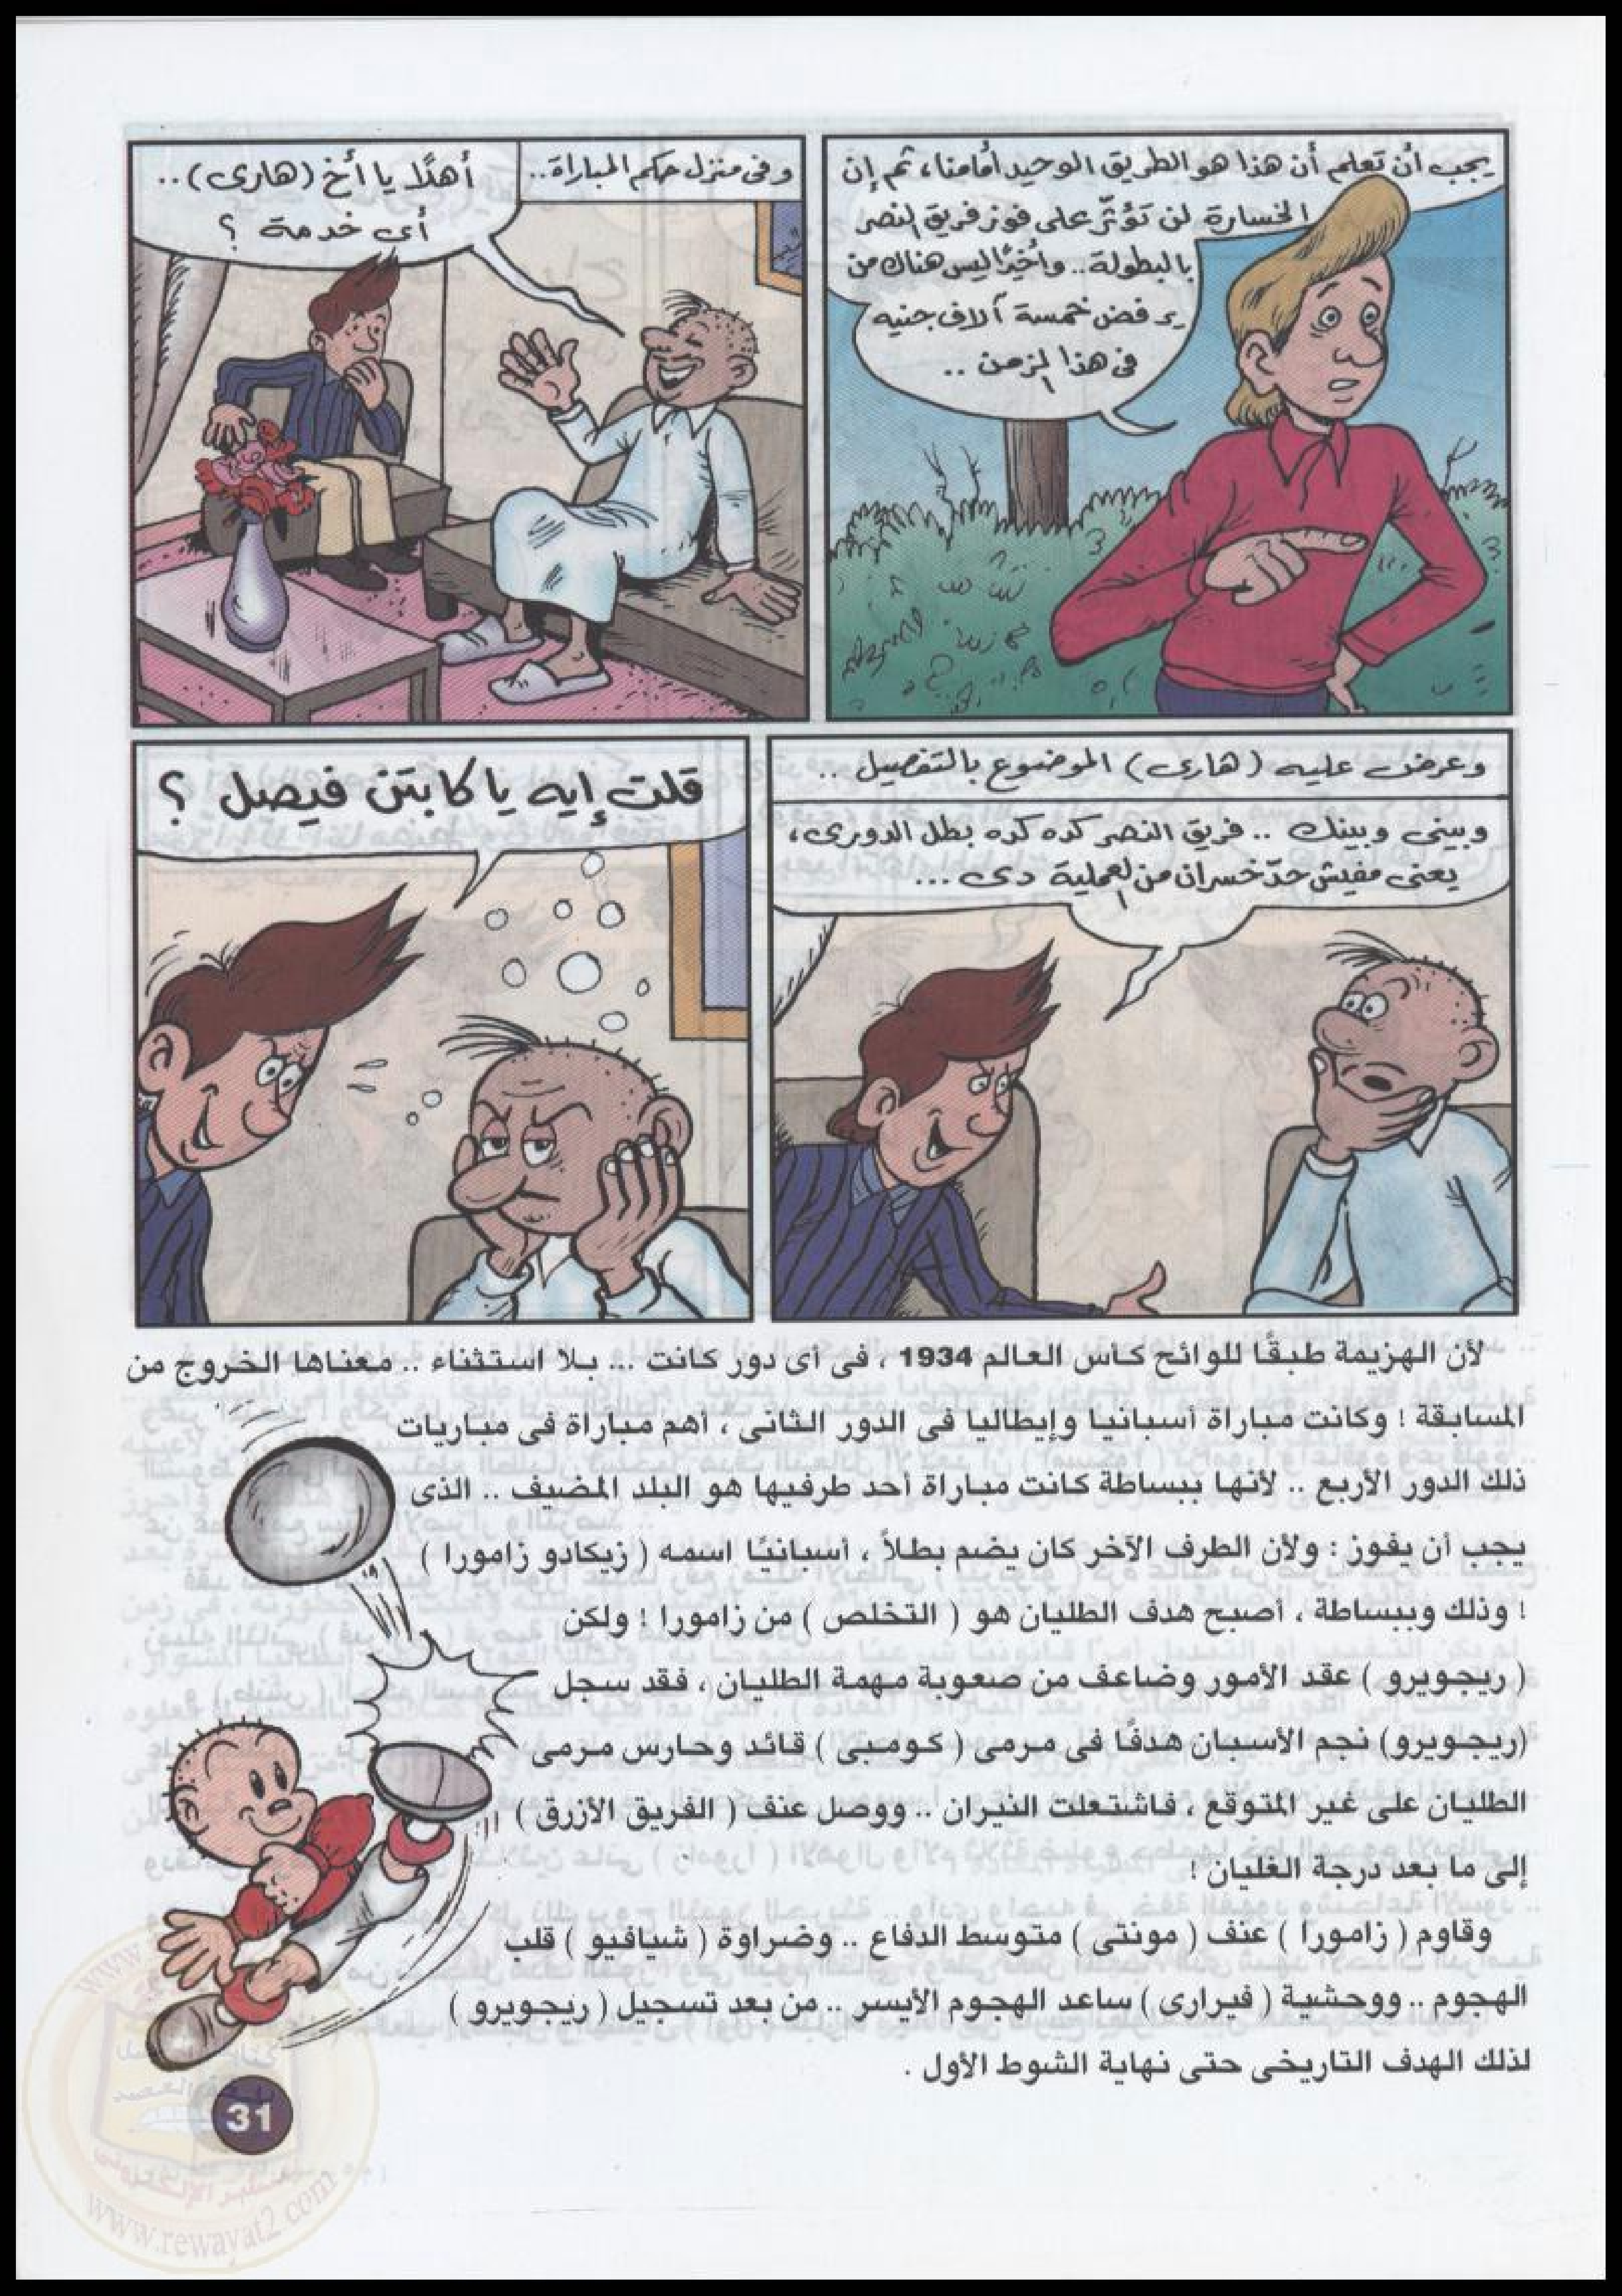 يجب أن تعلم أن هذا هو الطريق الوحيد أمامنا، ثم إن
الخسارة لن تؤثّر على فوز فريق النصر
بالبطولة.. وأخيرًا ليس هناك من
يرفض خمسة آلاف جنيه
فى هذا الزمن ..
وفى منزل حكم المباراة..
أهلًا يا أخ (هارى) ..
أى خدمة ؟
وعرض عليه (هارى) الموضوع بالتفصيل ..
وبينى وبينك .. فريق النصر كده كده بطل الدورى،
يعنى مفيش حدّ خسران من العملية دى ...
قلت إيه يا كابتن فيصل ؟
لأن الهزيمة طبقًا للوائح كأس العالم 1934 ، فى أى دور كانت ... بلا استثناء .. معناها الخروج من
المسابقة ! وكانت مباراة أسبانيا وإيطاليا فى الدور الثانى ، أهم مباراة فى مباريات
ذلك الدور الأربع .. لأنها ببساطة كانت مباراة أحد طرفيها هو البلد المضيف .. الذى
يجب أن يفوز : ولأن الطرف الآخر كان يضم بطلاً ، أسبانيًا اسمه ( زيكادو زامورا )
! وذلك وببساطة ، أصبح هدف الطليان هو ( التخلص ) من زامورا ! ولكن
( ريجويرو ) عقد الأمور وضاعف من صعوبة مهمة الطليان ، فقد سجل
(ريجويرو) نجم الأسبان هدفًا فى مرمى ( كومبى ) قائد وحارس مرمى
الطليان على غير المتوقع ، فاشتعلت النيران .. ووصل عنف ( الفريق الأزرق )
إلى ما بعد درجة الغليان !
وقاوم ( زامورا ) عنف ( مونتى ) متوسط الدفاع .. وضراوة ( شيافيو ) قلب
الهجوم .. ووحشية ( فيرارى ) ساعد الهجوم الأيسر .. من بعد تسجيل ( ريجويرو )
لذلك الهدف التاريخى حتى نهاية الشوط الأول .
31
www.rewayat2.com